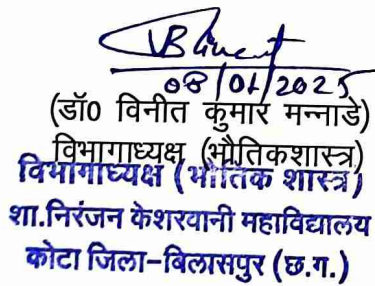 08/01/2025
(डॉ0 विनीत कुमार मन्नाडे)
विभागाध्यक्ष (भौतिकशास्त्र)
विभागाध्यक्ष (भौतिक शास्त्र)
शा.निरंजन केशरवानी महाविद्यालय
कोटा जिला-बिलासपुर (छ.ग.)